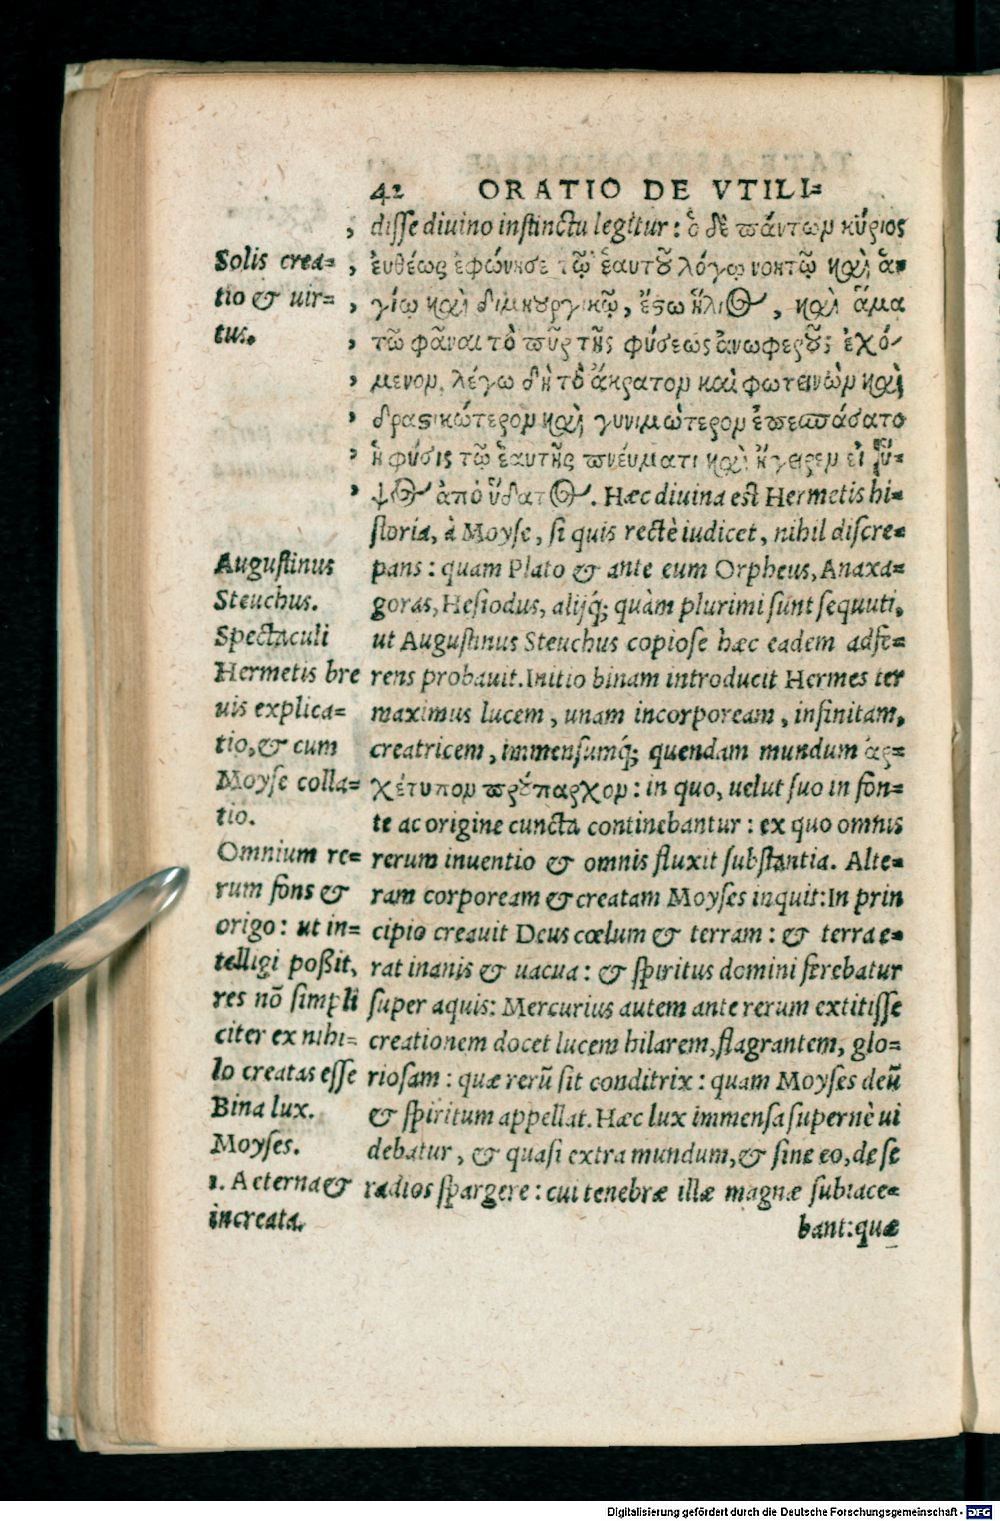 42 ORATIO DE VTILI=
disse diuino instinctu legitur: ὁ δὲ πάντων κύριος
ἐυθέως ἐφώνησε τῷ ἑαυτοῦ λόγῳ νοητῷ καὶ ἁ-
γίῳ καὶ δημιουργικῷ, ἔστω ἥλιος, καὶ ἅμα
τῶ φᾶναι τὸ πῦρ τῆς φύσεως ἀνωφεροῦς ἐχό-
μενον, λέγω δὴ τὸ ἄκρατον καὶ φωτεινὼν καὶ
δραστικώτερον καὶ γονιμώτερον ἐπεσπάσατο
ἡ φύσις τῷ ἑαυτῆς πνέυματι καὶ ἤγειρεν εἰς ὕ-
ψος ἀπὸ ὕδατος. Hæc diuina est Hermetis hi=
storia, à Moyse, si quis rectè iudicet, nihil discre=
pans: quam Plato & ante eum Orpheus, Anaxa=
goras, Hesiodus, alijq́; quàm plurimi sunt sequuti,
ut Augustinus Steuchus copiose hæc eadem adfe=
rens probauit. Initio binam introducit Hermes ter
maximus lucem, unam incorpoream, infinitam,
creatricem, immensumq́; quendam mundum ἀρ=
χέτυπον προύπαρχον: in quo, uelut suo in fon=
te ac origine cuncta continebantur: ex quo omnis
rerum inuentio & omnis fluxit substantia. Alte=
ram corpoream & creatam Moyses inquit: In prin
cipio creauit Deus cœlum & terram: & terra e=
rat inanis & uacua: & spiritus domini ferebatur
super aquis: Mercurius autem ante rerum extitisse
creationem docet lucem hilarem, flagrantem, glo=
riosam: quæ rerū sit conditrix: quam Moyses deū
& spiritum appellat. Hæc lux immensa supernè ui
debatur, & quasi extra mundum, & sine eo, de se
radios spargere: cui tenebræ illæ magnæ subiace=
bant: quæ
Solis crea=
tio & uir=
tus.
Augustinus
Steuchus.
Spectaculi
Hermetis bre
uis explica=
tio, & cum
Moyse colla=
tio.
Omnium re=
rum fons &
origo: ut in=
telligi poßit,
res nō simpli
citer ex nihi=
lo creatas esse
Bina lux.
Moyses.
1. Aeterna &
increata.
Digitalisierung gefördert durch die Deutsche Forschungsgemeinschaft - DFG